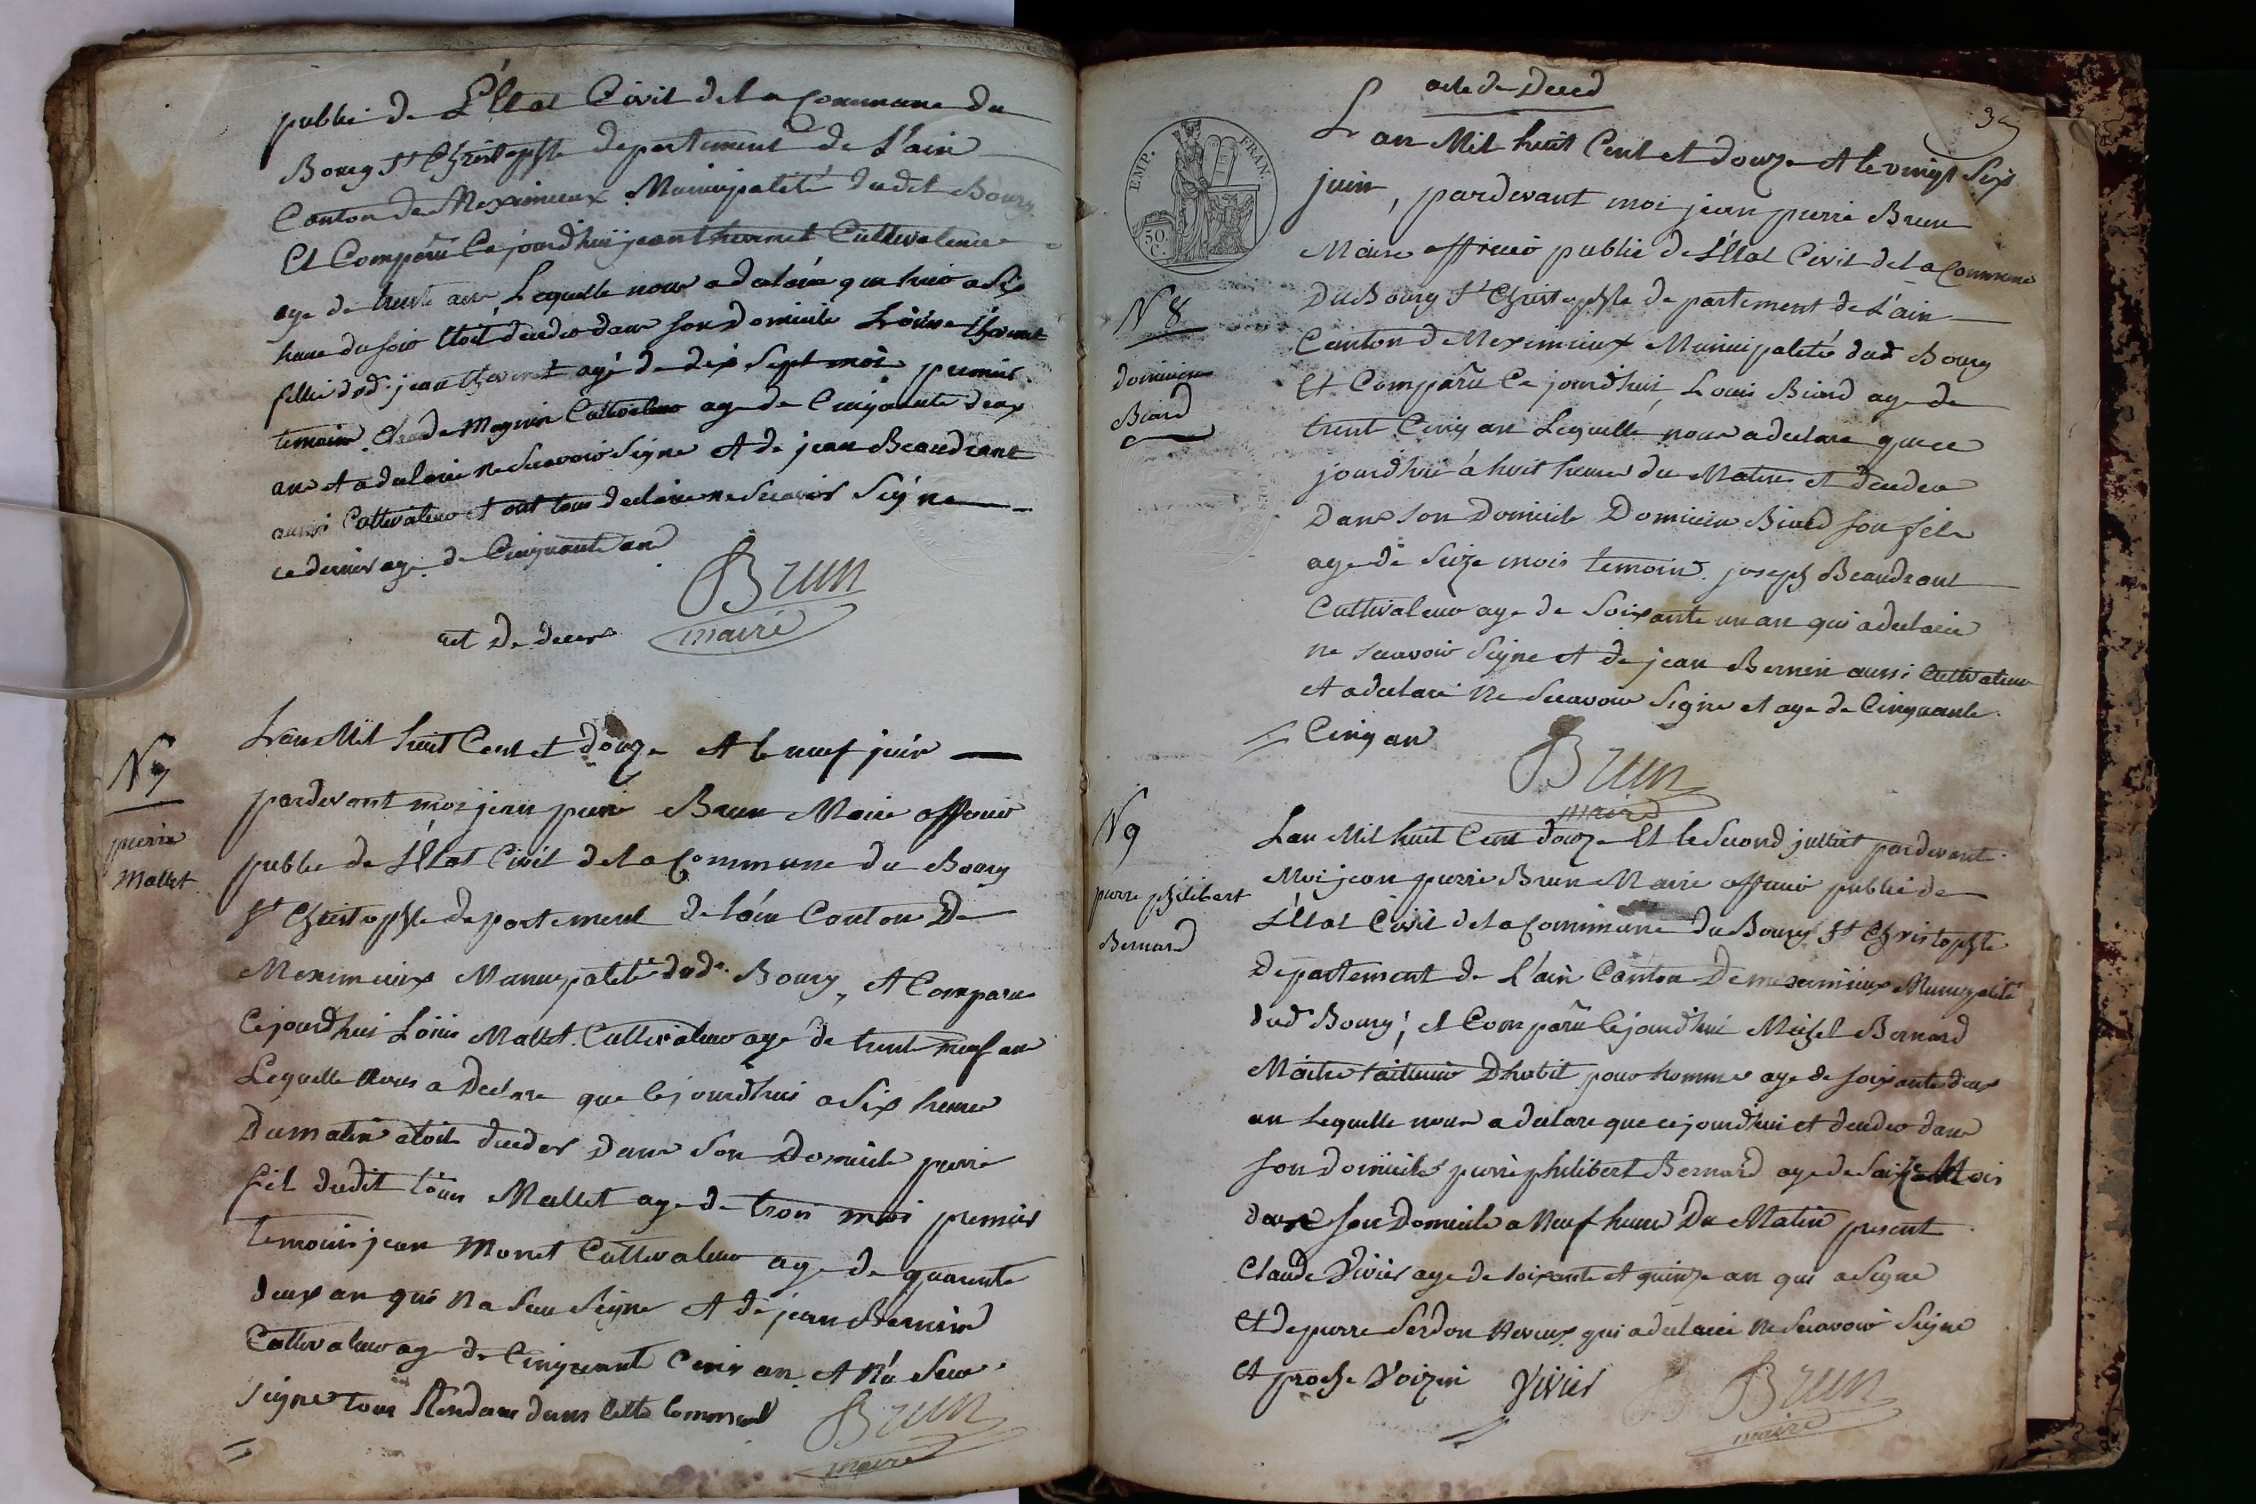 public de L'Etat Civil de la Commune du
Bourg St Christophle departement de L'ain
Canton de Meximieux Municipalité dudit Bourg
Et Comparu Ce jourdhui jean thevenet Cultivateur
age de trente ans Lequelle nous a declaré que hier a six
heure du soir etoit decedee dans son Domicile Loüise thevenet
fillie dud. jean thevenet agé de dix sept mois premier
temoins Claude Magnin Cultivateur age de Cinquante deux
ans et a declaré ne scavoir signe et de jean Beaudrant
aussi Cultivateur et ont tous declaire ne scavoir Signe
ce dernier age de Cinquante an
Brun
maire
act De deces
N 7
pierre
Mallet
Lan Mil huit Cent et douze et le neuf juin
pardevant moi jean pierre Brun Maire officier
public de L'Etat Civil de la Commune du Bourg
St Christophle departement de l'ain Canton De
Meximieux Municipalité dud. Bourg, et Comparu
Cejourdhui Loüis Mallet Cultivateur age de trente neuf an
Lequelle nous a Declare que cejourdhui a six heure
Dumatin etoit decedes Dans son Domicile pierre
fil dudit loüis Mallet age de trois moi premier
temoins jean Monet Cultivateur age de quarente
deux an qui na seu signe et de jean Bernin
Cultivateur age de Cinquant Cinq an et na seu
signe tous Residans dans cette commune
Brun
maire
39
acte de Deced
EMP. FRAN.
50 C.
N 8
dominien
Biard
Lan Mil huit Cent et douze et le vingt six
juin, pardevant moi jean pierre Brun
Maire officier public de L'Etat Civil de la Commune
Du Bourg St Christophle departement de L'ain
Canton de Meximieux Municipalité dud Bourg
Et Comparu Ce jourdhui, Louis Biard age de
trent Cinq an Lequelle nous a declare que ce
jourdhui à huit heure du Matin et decedee
Dans son Domicile Dominien Biard son fils
age de seize mois temoins joseph Beaudrant
Cultivateur age de soixante un an qui a declaré
ne scavoir signe et de jean Bernin aussi Cultivateur
et a declaré ne scavoir signe et age de Cinquante
Cinq an
Brun
maire
N 9
pierre philibert
Bernard
Lan Mil huit Cent douze Et le second julliet pardevant
Moi jean pierre Brun Maire officier public de
L'Etat Civil de la Commune du Bourg St Christophle
Departement de L'ain Canton De meximieux Municipalité
dud Bourg; et Comparu Cejourdhui Michel Bernard
Maitre tailleur Dhabit pour homme age de soixante deux
an Lequelle nous a declare que cejourdhui et decedee dans
son domicile pierre philibert Bernard age de Mois
dans son Domicile a Neuf heure Du Matin present
Claude Vivier age de soixante et quinze an qui a signe
et de pierre Serdon Neveux qui a declaré ne scavoir signe
et proche Voizin Vivier
Brun
maire